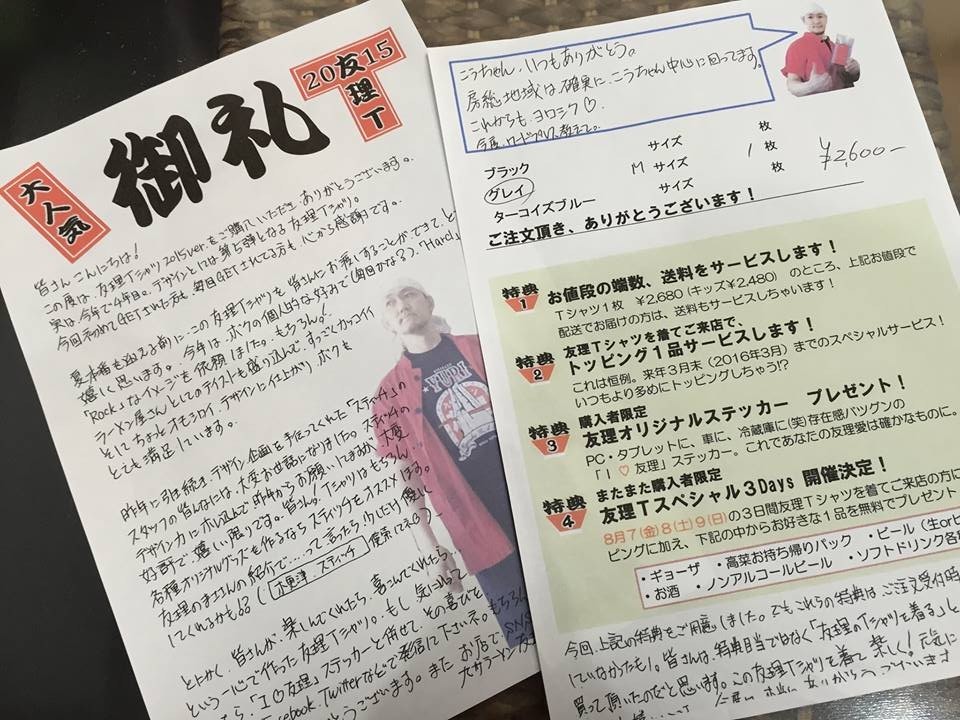 2015
友理T
御礼
大人気
皆さんこんにちは!
この度は、友理Tシャツ2015ver.をご購入いただき、ありがとうございます。
実は、今年で4年目。デザインとしては第5弾となる友理Tシャツ。
今回初めてGETされた方も、毎回GETされてる方も、心から感謝です。
夏本番を迎える前に、この友理Tシャツを皆さんにお渡しすることができて、と
嬉しく思います。今年は、ボクの個人的な好みで(毎回かなぁ?)、「Hard」
「Rock」なイメージを依頼しました。もちろん
ラーメン屋さんとしてのテイストも盛り込んで、すっごくカッコイイ
そしてちょっとオモシロイ、デザインに仕上がり、ボクも
とても満足しています。
昨年に引き続き、デザイン企画を手伝ってくれた「スティッチ」の
スタッフの皆さんには、大変お世話になりました。スティッチの
デザイン力にホレ込んで昨年からお願いしてますが、大変
好評で、嬉しい限りです。皆さんも、Tシャツはもちろん、
各種オリジナルグッズを作るならスティッチをオススメします。
友理のまさくんの紹介で…って言ったら少しだけ優しく
してくれるかも!?(木更津 スティッチ 検索
とにかく、皆さんが、楽しんでくれたら、喜こんでくれたら…
という一心で作った友理Tシャツ。もし、気に入って
たら、「I♡友理」ステッカーと併せて、その喜びを
Facebook、Twitterなどで発信して下さいネ。もちろん
うございます。また、お店で、SNS
大サカラーメン友
YURI
こうちゃん、いつもありがとう。
房総地域は、確実に、こうちゃん中心に回ってます。
これからも、ヨロシク♡
今度、ワードプレス、教えて。
ブラック サイズ 枚
グレイ M サイズ 1 枚 ¥2,600-
ターコイズブルー サイズ 枚
ご注文頂き、ありがとうございます!
特典1 お値段の端数、送料をサービスします!
Tシャツ1枚 ¥2,680(キッズ¥2,480) のところ、上記お値段で
配送でお届けの方は、送料もサービスしちゃいます!
特典2 友理Tシャツを着てご来店で、
トッピング1品サービスします!
これは恒例。来年3月末(2016年3月)までのスペシャルサービス!
いつもより多めにトッピングしちゃう!?
特典3 購入者限定
友理オリジナルステッカー プレゼント!
PC・タブレットに、車に、冷蔵庫に(笑)存在感バツグンの
「I ♡ 友理」ステッカー。これであなたの友理愛は確かなものに。
特典4 またまた購入者限定
友理Tスペシャル3Days 開催決定!
8月7(金)8(土)9(日)の3日間友理Tシャツを着てご来店の方に
ピングに加え、下記の中からお好きな1品を無料でプレゼント
・ギョーザ ・高菜お持ち帰りパック ・ビール(生orビ
・お酒 ・ノンアルコールビール ・ソフトドリンク各種
今回、上記の特典をご用意しました。でもこれらの特典は、ご注文受付時
していなかったもの。皆さんは、特典目当てではなく「友理のTシャツを着る」と
買って頂いたのだと思います。この友理Tシャツを着て、楽しく!元気に